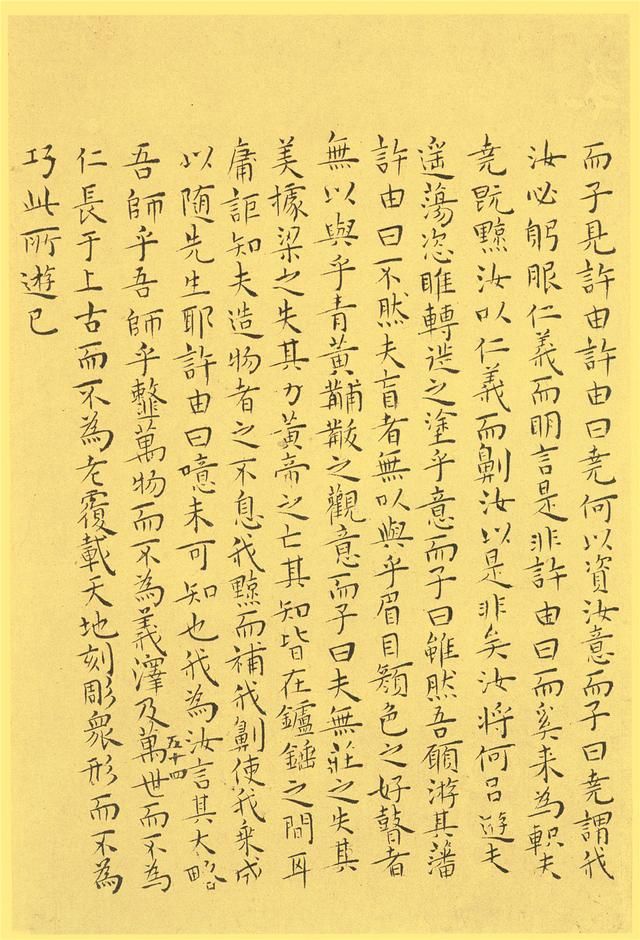 而子見許由許由曰堯何以資汝意而子曰堯謂我
汝必躬服仁義而明言是非許由曰而奚来為軹夫
堯既黥汝以仁義而劓汝以是非矣汝将何㠯遊夫
遥蕩恣睢轉徙之塗乎意而子曰雖然吾願游其藩
許由曰不然夫盲者無以與乎眉目顏色之好瞽者
無以與乎青黃黼黻之觀意而子曰夫無莊之失其
美據梁之失其力黃帝之亡其知皆在鑪錘之間耳
庸詎知夫造物者之不息我黥而補我劓使我乘成
以随先生耶許由曰噫未可知也我為汝言其大略
五十四
吾師乎吾師乎韲萬物而不為義澤及萬世而不為
仁長于上古而不為老覆載天地刻彫衆形而不為
巧此所遊已